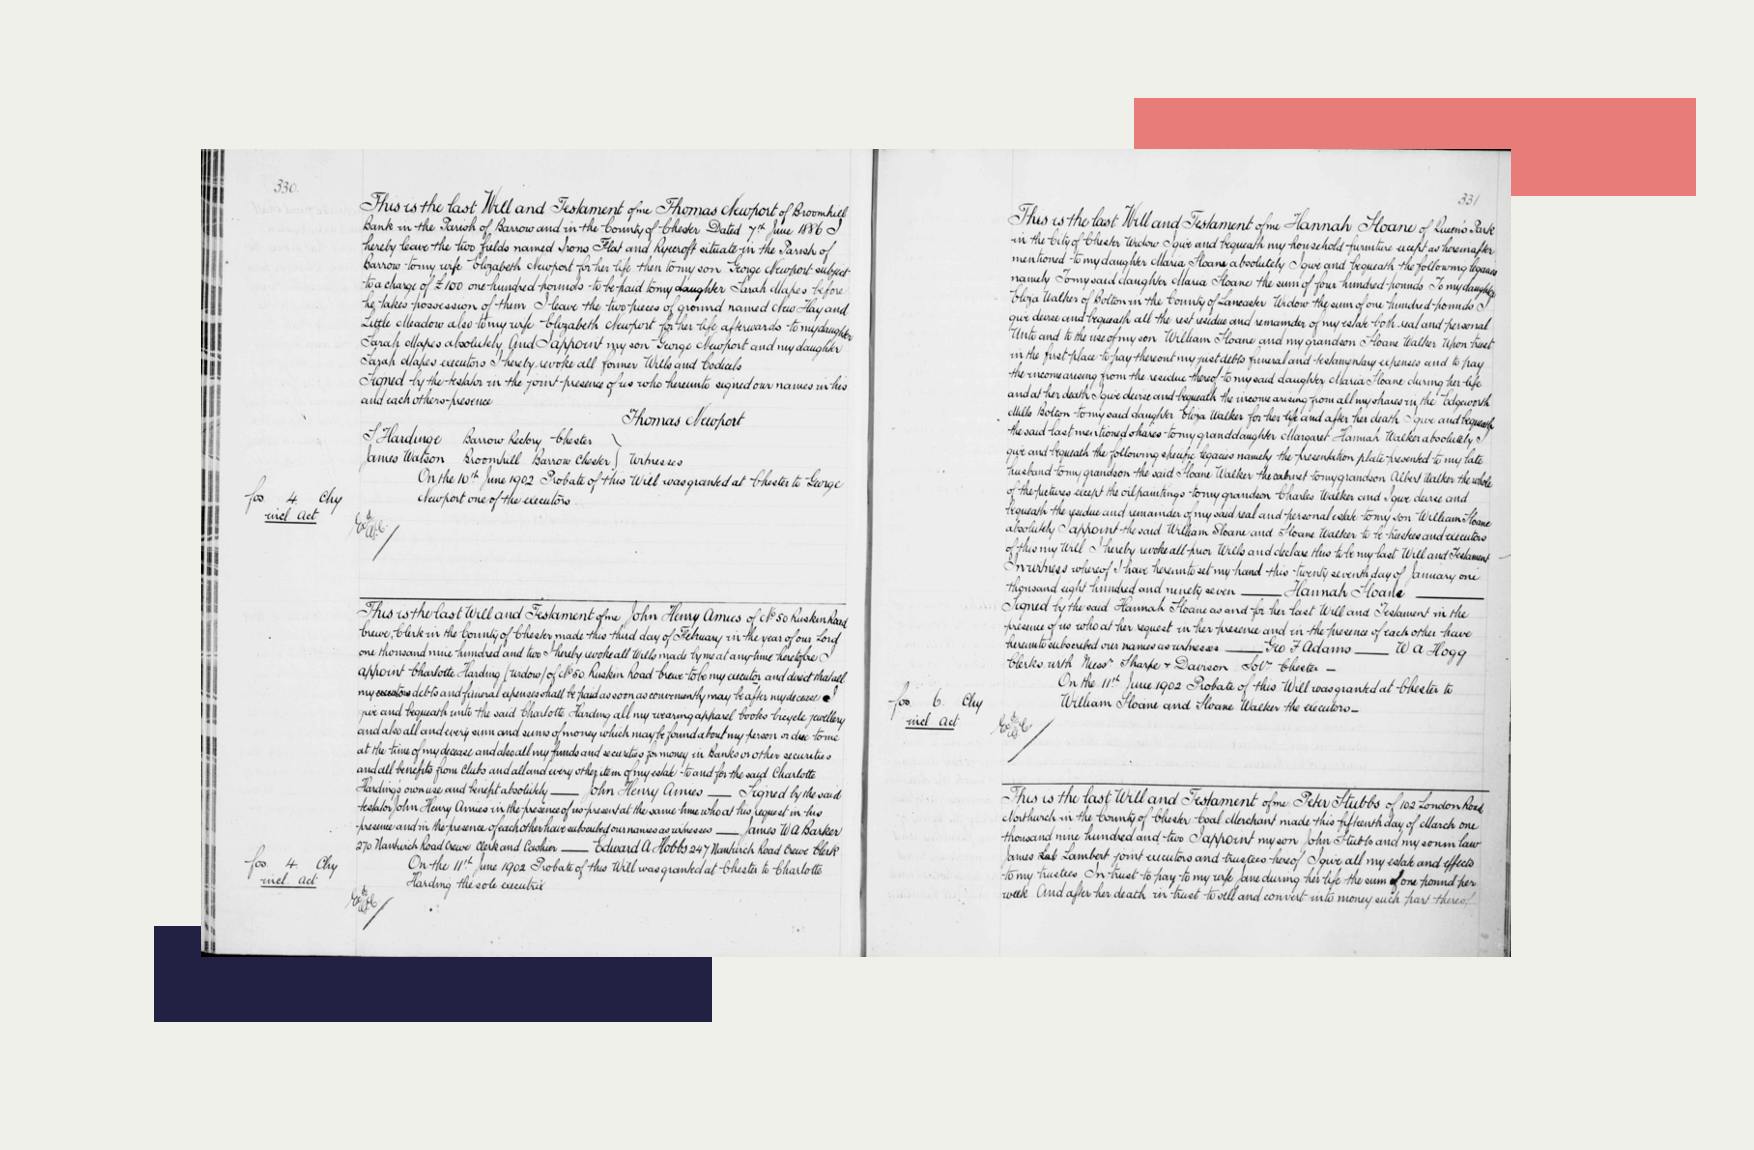 330.
This is the last Will and Testament of me Thomas Newport of Broomhill
Bank in the Parish of Barrow and in the County of Chester Dated 7th June 1886 I
hereby leave the two fields named Irons Flat and Ryecroft situate in the Parish of
Barrow to my wife Elizabeth Newport for her life then to my son George Newport subject
to a charge of £100 one hundred pounds to be paid to my daughter Sarah Mapes before
he takes possession of them I leave the two pieces of ground named New Hay and
Little Meadow also to my wife Elizabeth Newport for her life afterwards to my daughter
Sarah Mapes absolutely And I appoint my son George Newport and my daughter
Sarah Mapes executors I hereby revoke all former Wills and Codicils
Signed by the testator in the joint presence of us who hereunto signed our names in his
and each others presence
Thomas Newport
S Hardinge Barrow Rectory Chester
James Watson Broomhill Barrow Chester } Witnesses
On the 10th June 1902 Probate of this Will was granted at Chester to George
Newport one of the executors.
fos. 4 Chy
incl Act
This is the last Will and Testament of me John Henry Amies of No 50 Ruskin Road
Crewe, Clerk in the County of Chester made this third day of February in the year of our Lord
one thousand nine hundred and two I hereby revoke all Wills made by me at any time heretofore I
appoint Charlotte Harding (widow) of No 50 Ruskin Road Crewe to be my executor and direct that all
my executors debts and funeral expenses shall be paid as soon as conveniently may be after my decease I
give and bequeath unto the said Charlotte Harding all my wearing apparel books bicycle jewellery
and also all and every sum and sums of money which may be found about my person or due to me
at the time of my decease and also all my funds and securities for money in Banks or other securities
and all benefits from Clubs and all and every other item of my estate to and for the said Charlotte
Harding's own use and benefit absolutely — John Henry Amies — Signed by the said
testator John Henry Amies in the presence of us present at the same time who at his request in his
presence and in the presence of each other have subscribed our names as witnesses — James W A Barker
270 Nantwich Road Crewe Clerk and Cashier — Edward A Hobbs 247 Nantwich Road Crewe Clerk
On the 11th June 1902 Probate of this Will was granted at Chester to Charlotte
Harding the sole executrix
fos. 4. Chy
incl Act
331
This is the last Will and Testament of me Hannah Sloane of Queen's Park
in the City of Chester Widow I give and bequeath my household furniture except as hereinafter
mentioned to my daughter Maria Sloane absolutely I give and bequeath the following legacies
namely To my said daughter Maria Sloane the sum of four hundred pounds To my daughter
Eliza Walker of Bolton in the County of Lancaster Widow the sum of one hundred pounds I
give devise and bequeath all the rest residue and remainder of my estate both real and personal
Unto and to the use of my son William Sloane and my grandson Sloane Walker Upon trust
in the first place to pay thereout my just debts funeral and testamentary expenses and to pay
the income arising from the residue thereof to my said daughter Maria Sloane during her life
and at her death I give devise and bequeath the income arising from all my shares in the Edgeworth
Mills Bolton to my said daughter Eliza Walker for her life and after her death I give and bequeath
the said last mentioned shares to my granddaughter Margaret Hannah Walker absolutely I
give and bequeath the following specific legacies namely the presentation plate presented to my late
husband to my grandson the said Sloane Walker the cabinet to my grandson Albert Walker the whole
of the pictures except the oil paintings to my grandson Charles Walker and I give devise and
bequeath the residue and remainder of my said real and personal estate to my son William Sloane
absolutely I appoint the said William Sloane and Sloane Walker to be trustees and executors
of this my Will I hereby revoke all prior Wills and declare this to be my last Will and Testament
In witness whereof I have hereunto set my hand this twenty seventh day of January one
thousand eight hundred and ninety seven — Hannah Sloane —
Signed by the said Hannah Sloane as and for her last Will and Testament in the
presence of us who at her request in her presence and in the presence of each other have
hereunto subscribed our names as witnesses — Geo F Adams — W A Hogg
Clerks with Messrs Sharpe & Davison Solrs Chester —
On the 11th June 1902 Probate of this Will was granted at Chester to
William Sloane and Sloane Walker the executors —
fos. 6. Chy
incl Act
This is the last Will and Testament of me Peter Stubbs of 102 London Road
Northwich in the County of Chester Coal Merchant made this fifteenth day of March one
thousand nine hundred and two I appoint my son John Stubbs and my son in law
James Lambert joint executors and trustees hereof I give all my estate and effects
to my trustees In trust to pay to my wife Jane during her life the sum of one pound per
week And after her death in trust to sell and convert into money such part thereof